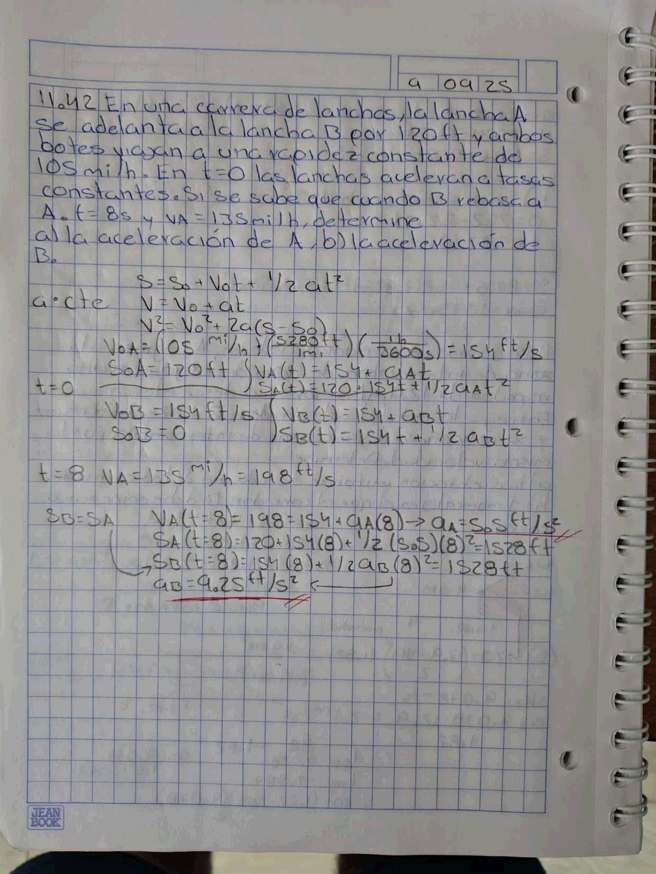 9 09 25
11.42 En una carrera de lanchas, la lancha A
se adelanta a la lancha B por 120ft y ambos
botes viajan a una rapidez constante de
105mi/h. En t=0 las lanchas aceleran a tasas
constantes. Si se sabe que cuando B rebasa a
A. t=8s y VA=135mi/h, determine
a) la aceleración de A, b) la aceleración de
B.
S=So+Vot+1/2 at²
a=cte V=Vo+at
V²=Vo²+2a(S-So)
VoA=(105 mi/h)(5280ft/1mi)(1h/3600s)=154 ft/s
SoA=120ft VA(t)=154+aAt
t=0 SA(t)=120+154t+1/2aAt²
VoB=154ft/s VB(t)=154+aBt
SoB=0 SB(t)=154t+1/2 aBt²
t=8 VA=135mi/h=198ft/s
SB=SA VA(t=8)=198=154+aA(8)→aA=5.5ft/s²
SA(t=8)=120+154(8)+1/2(5.5)(8)²=1528ft
SB(t=8)=154(8)+1/2aB(8)²=1528ft
aB=9.25ft/s²
JEAN
BOOK